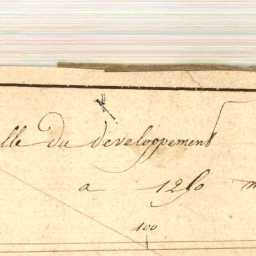 lle du developpement
a 1250 m
100